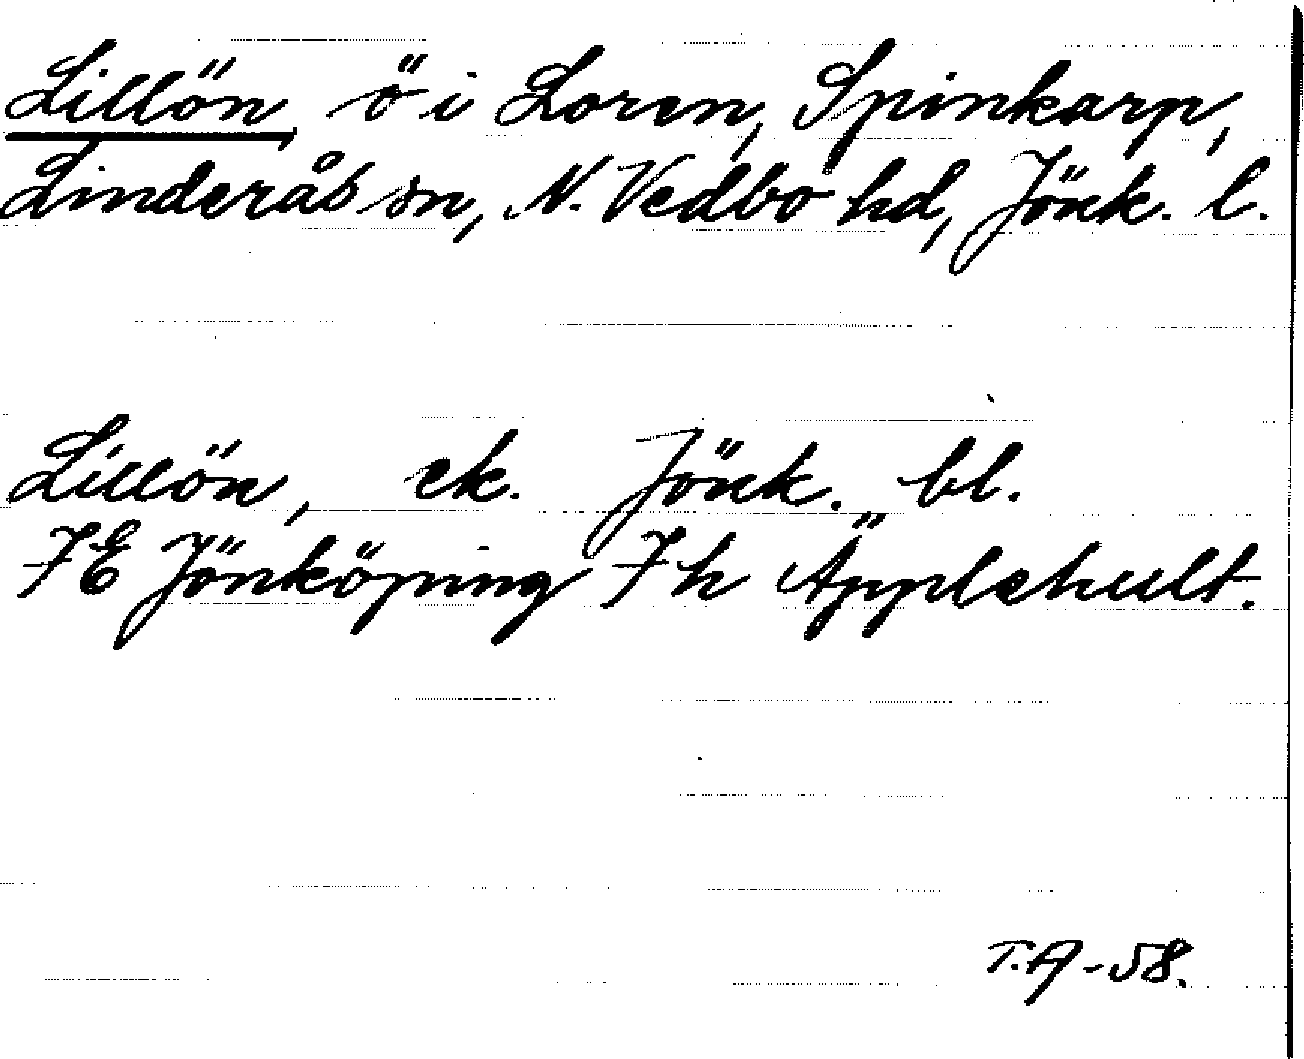 Lillön, ö i Loren, Spinkarp,
Linderås sn, N. Vedbo hd, Jönk. l.
Lillön, ek. Jönk. bl.
7E Jönköping 7h Äpplehult.
T.A-58.